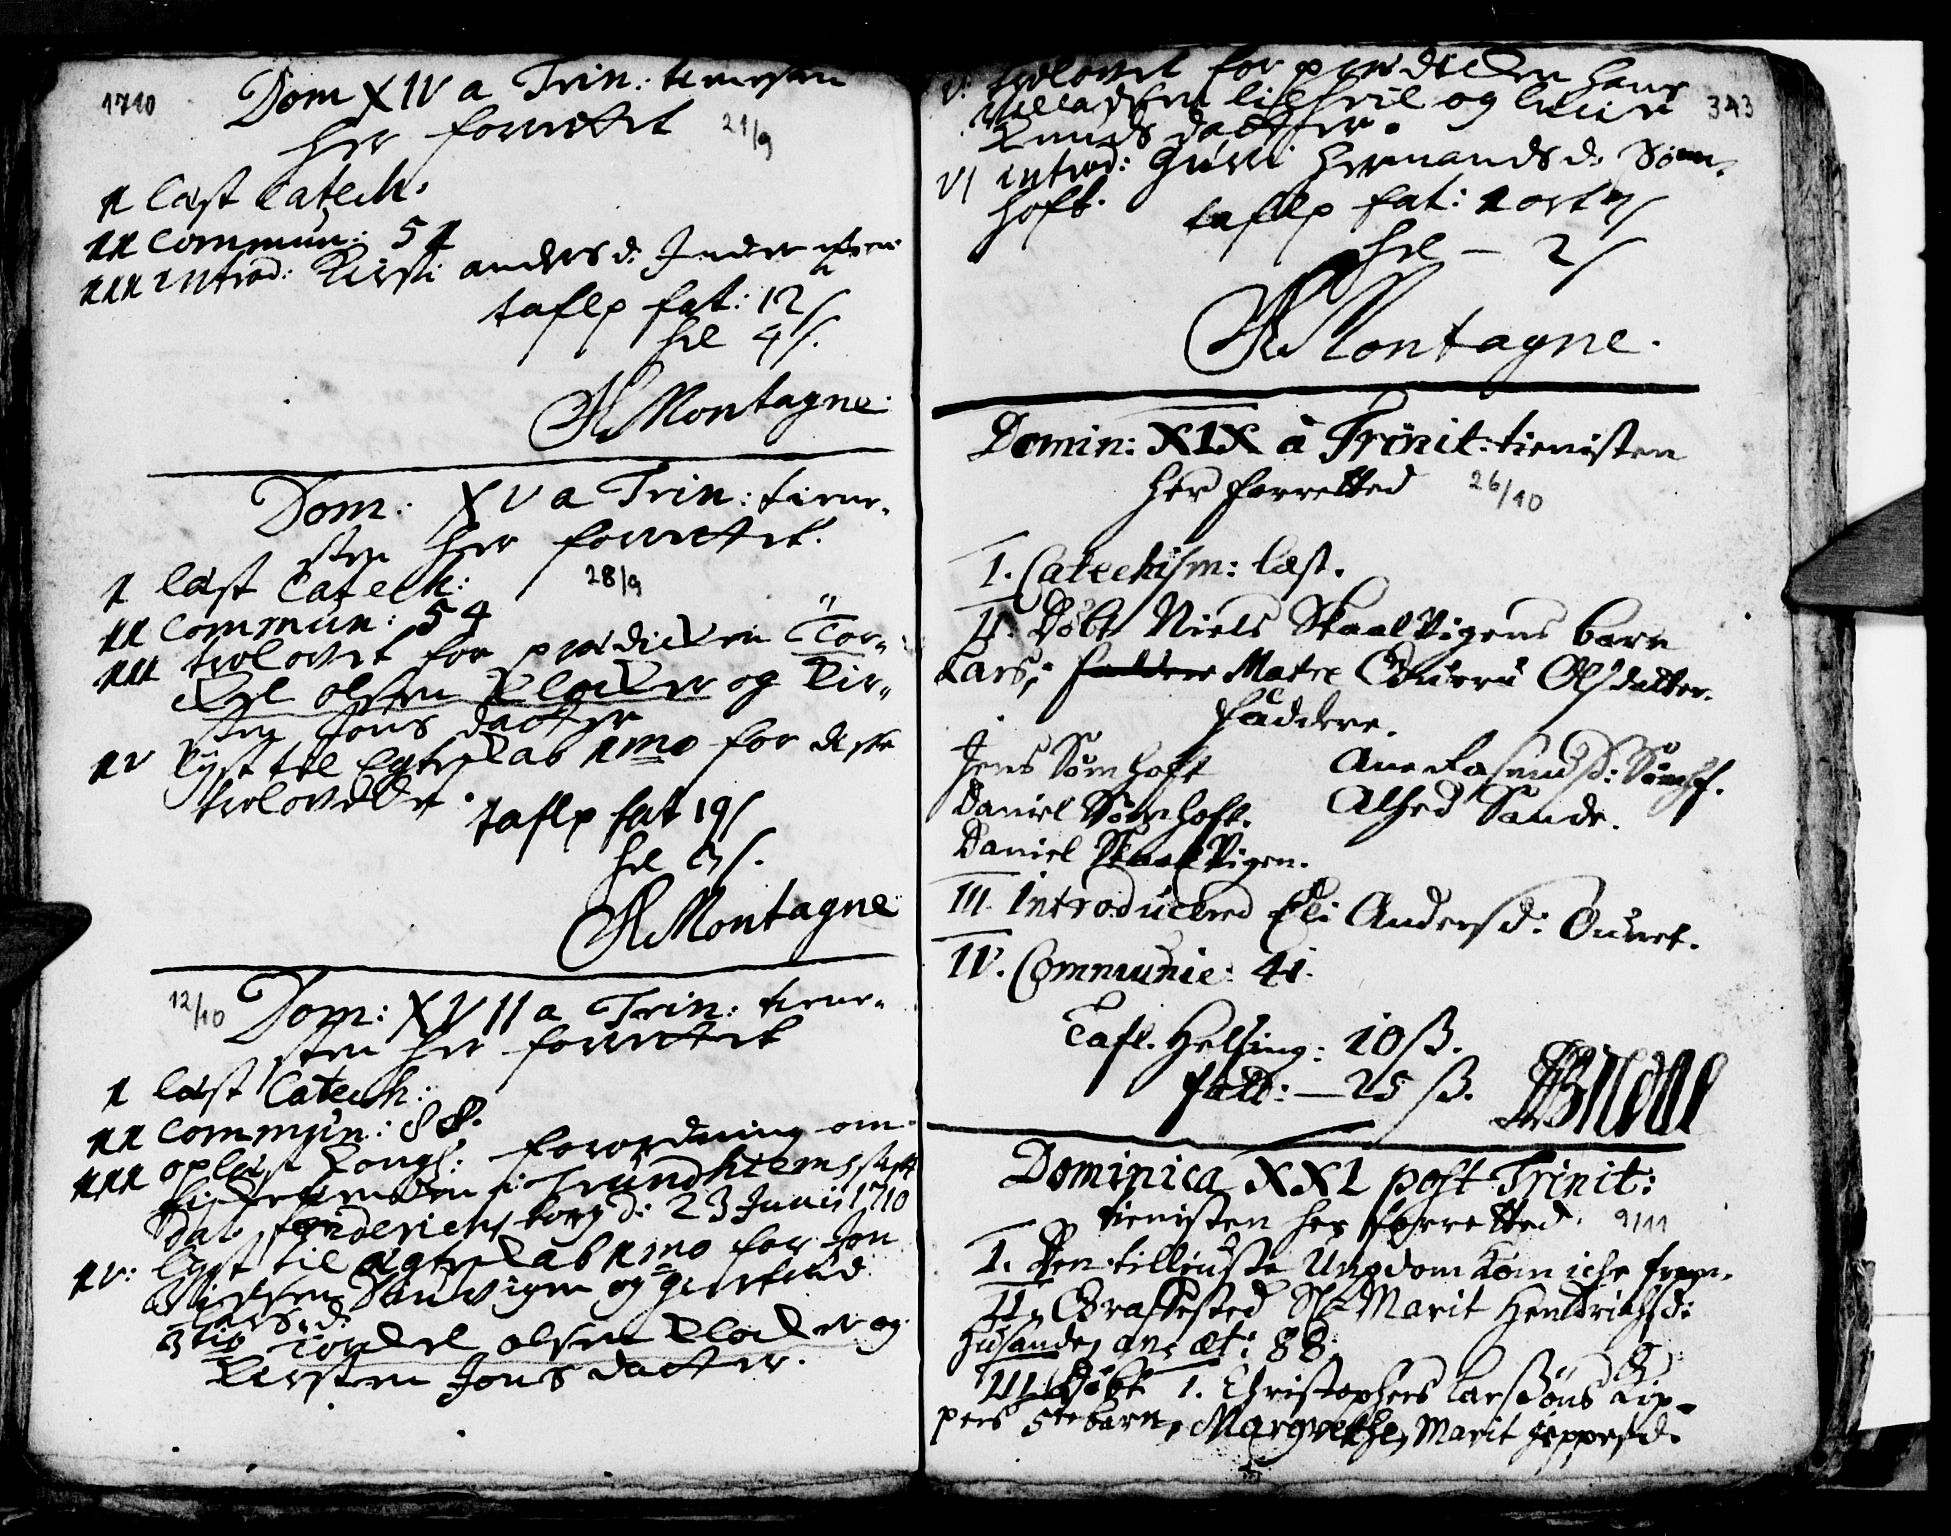 1710
Dom XIV a Trin: tienesten
her forrettet 21/9
I læst Catech.
II Commun: 54
III Introd: Kirsti anders d:
taflp fat: 12 ß
hel 4 ß.
Montagne
Dom: XV a Trin: tiene-
sten her forrettet.
28/9
I læst Catech:
II Commun: 54
III trolovet for prædicken Tor-
kel olsen Klocker og Kir-
sten Jons datter
IV lyst til Egteskab 1mo for disse
trolovede.
taflp fat 19 ß
hel
Montagne
12/10 Dom: XVII a Trin: tiene-
sten her forrettet
I læst Catech:
II Commun: 88.
III oplæst Kongl: forordning om
i Trundhiems stift
dat: friderichs borg d: 23 Junii 1710
IV: lyst til ægteskab 1mo for Jon
Sandvigen og giertrud
Lars d:
3tio Torkel olsen Klocker og
Kirsten Jons datter.
343
V: trolovet for prædicken Hans
Villadsen og
Knuds datter.
VI introd: Guri Hermands d: Søm-
hoft.
taflp fat: 1 ort
hel – 2 ß
Montagne.
Domin: XIX à Trinit: tienisten
her forretted 26/10
I. Catechism: læst.
II. Døbt Niels Skaalvigens barn
Lars; faddere Matre Olsdatter.
faddere.
Jens Sømhoft
Daniel Sømhoft.
Daniel Skaalvigen.
Ane Rasmusd: Sømhf.
Alhed Sande.
III. Introducered Eli Andersd:
IV. Communic: 41.
Tafl. Helsing: 10 ß.
fatt: – 25 ß.
Dominica XXI post Trinit:
tienisten her forretted. 9/11
I. Den tilliuste Ungdom kom iche frem.
II. Graffested Sl: Marit Hendrichsd:
Husande, an: æt: 88.
III. Døbt 1. Christophers Larssøns Kip-
pers barn, Margrethe, Marit Jeppesd.